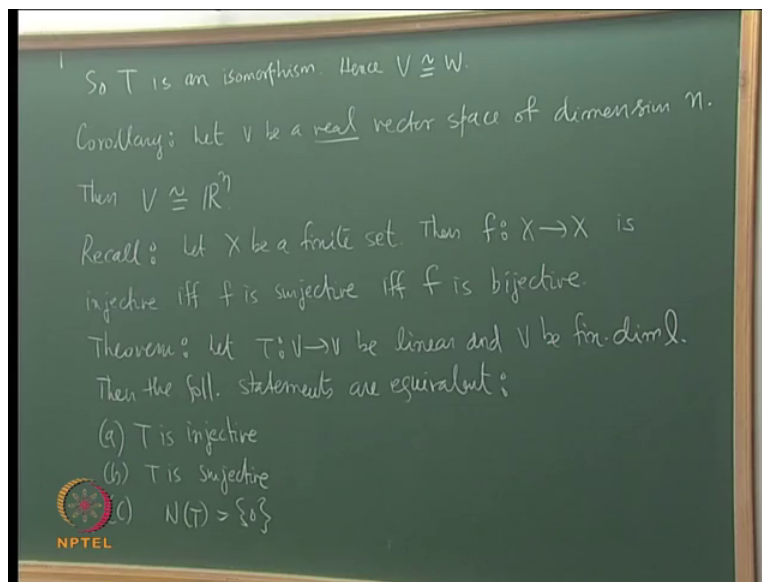 So T is an isomorphism. Hence V ≅ W.
Corollary: Let V be a real vector space of dimension n.
Then V ≅ ℝⁿ.
Recall: Let X be a finite set. Then f: X → X is
injective iff f is surjective iff f is bijective.
Theorem: Let T: V → V be linear and V be fin. diml.
Then the foll. statements are equivalent:
(a) T is injective
(b) T is surjective
(c) N(T) = {0}
NPTEL